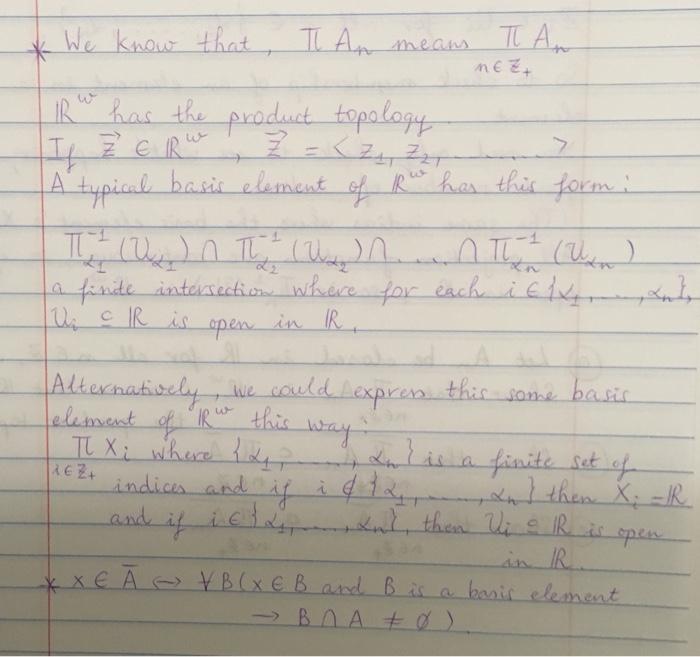 * We know that, Π Aₙ means Π Aₙ
n∈ℤ₊
ℝʷ has the product topology.
If z⃗ ∈ ℝʷ, z⃗ = <z₁, z₂, ........>
A typical basis element of ℝʷ has this form:
Π⁻¹_α₁ (U_α₁) ∩ Π⁻¹_α₂ (U_α₂) ∩ .... ∩ Π⁻¹_αₙ (U_αₙ)
a finite intersection where for each i ∈ {α₁, ...., αₙ},
Uᵢ ⊆ ℝ is open in ℝ.
Alternatively, we could express this some basis
element of ℝʷ this way:
Π Xᵢ where {α₁, ......, αₙ} is a finite set of
i∈ℤ₊ indices and if i ∉ {α₁, ......, αₙ} then Xᵢ = ℝ
and if i ∈ {α₁, ......, αₙ}, then Uᵢ ⊆ ℝ is open
in ℝ.
* x ∈ Ā ↔ ∀B(x ∈ B and B is a basis element
→ B ∩ A ≠ ∅)